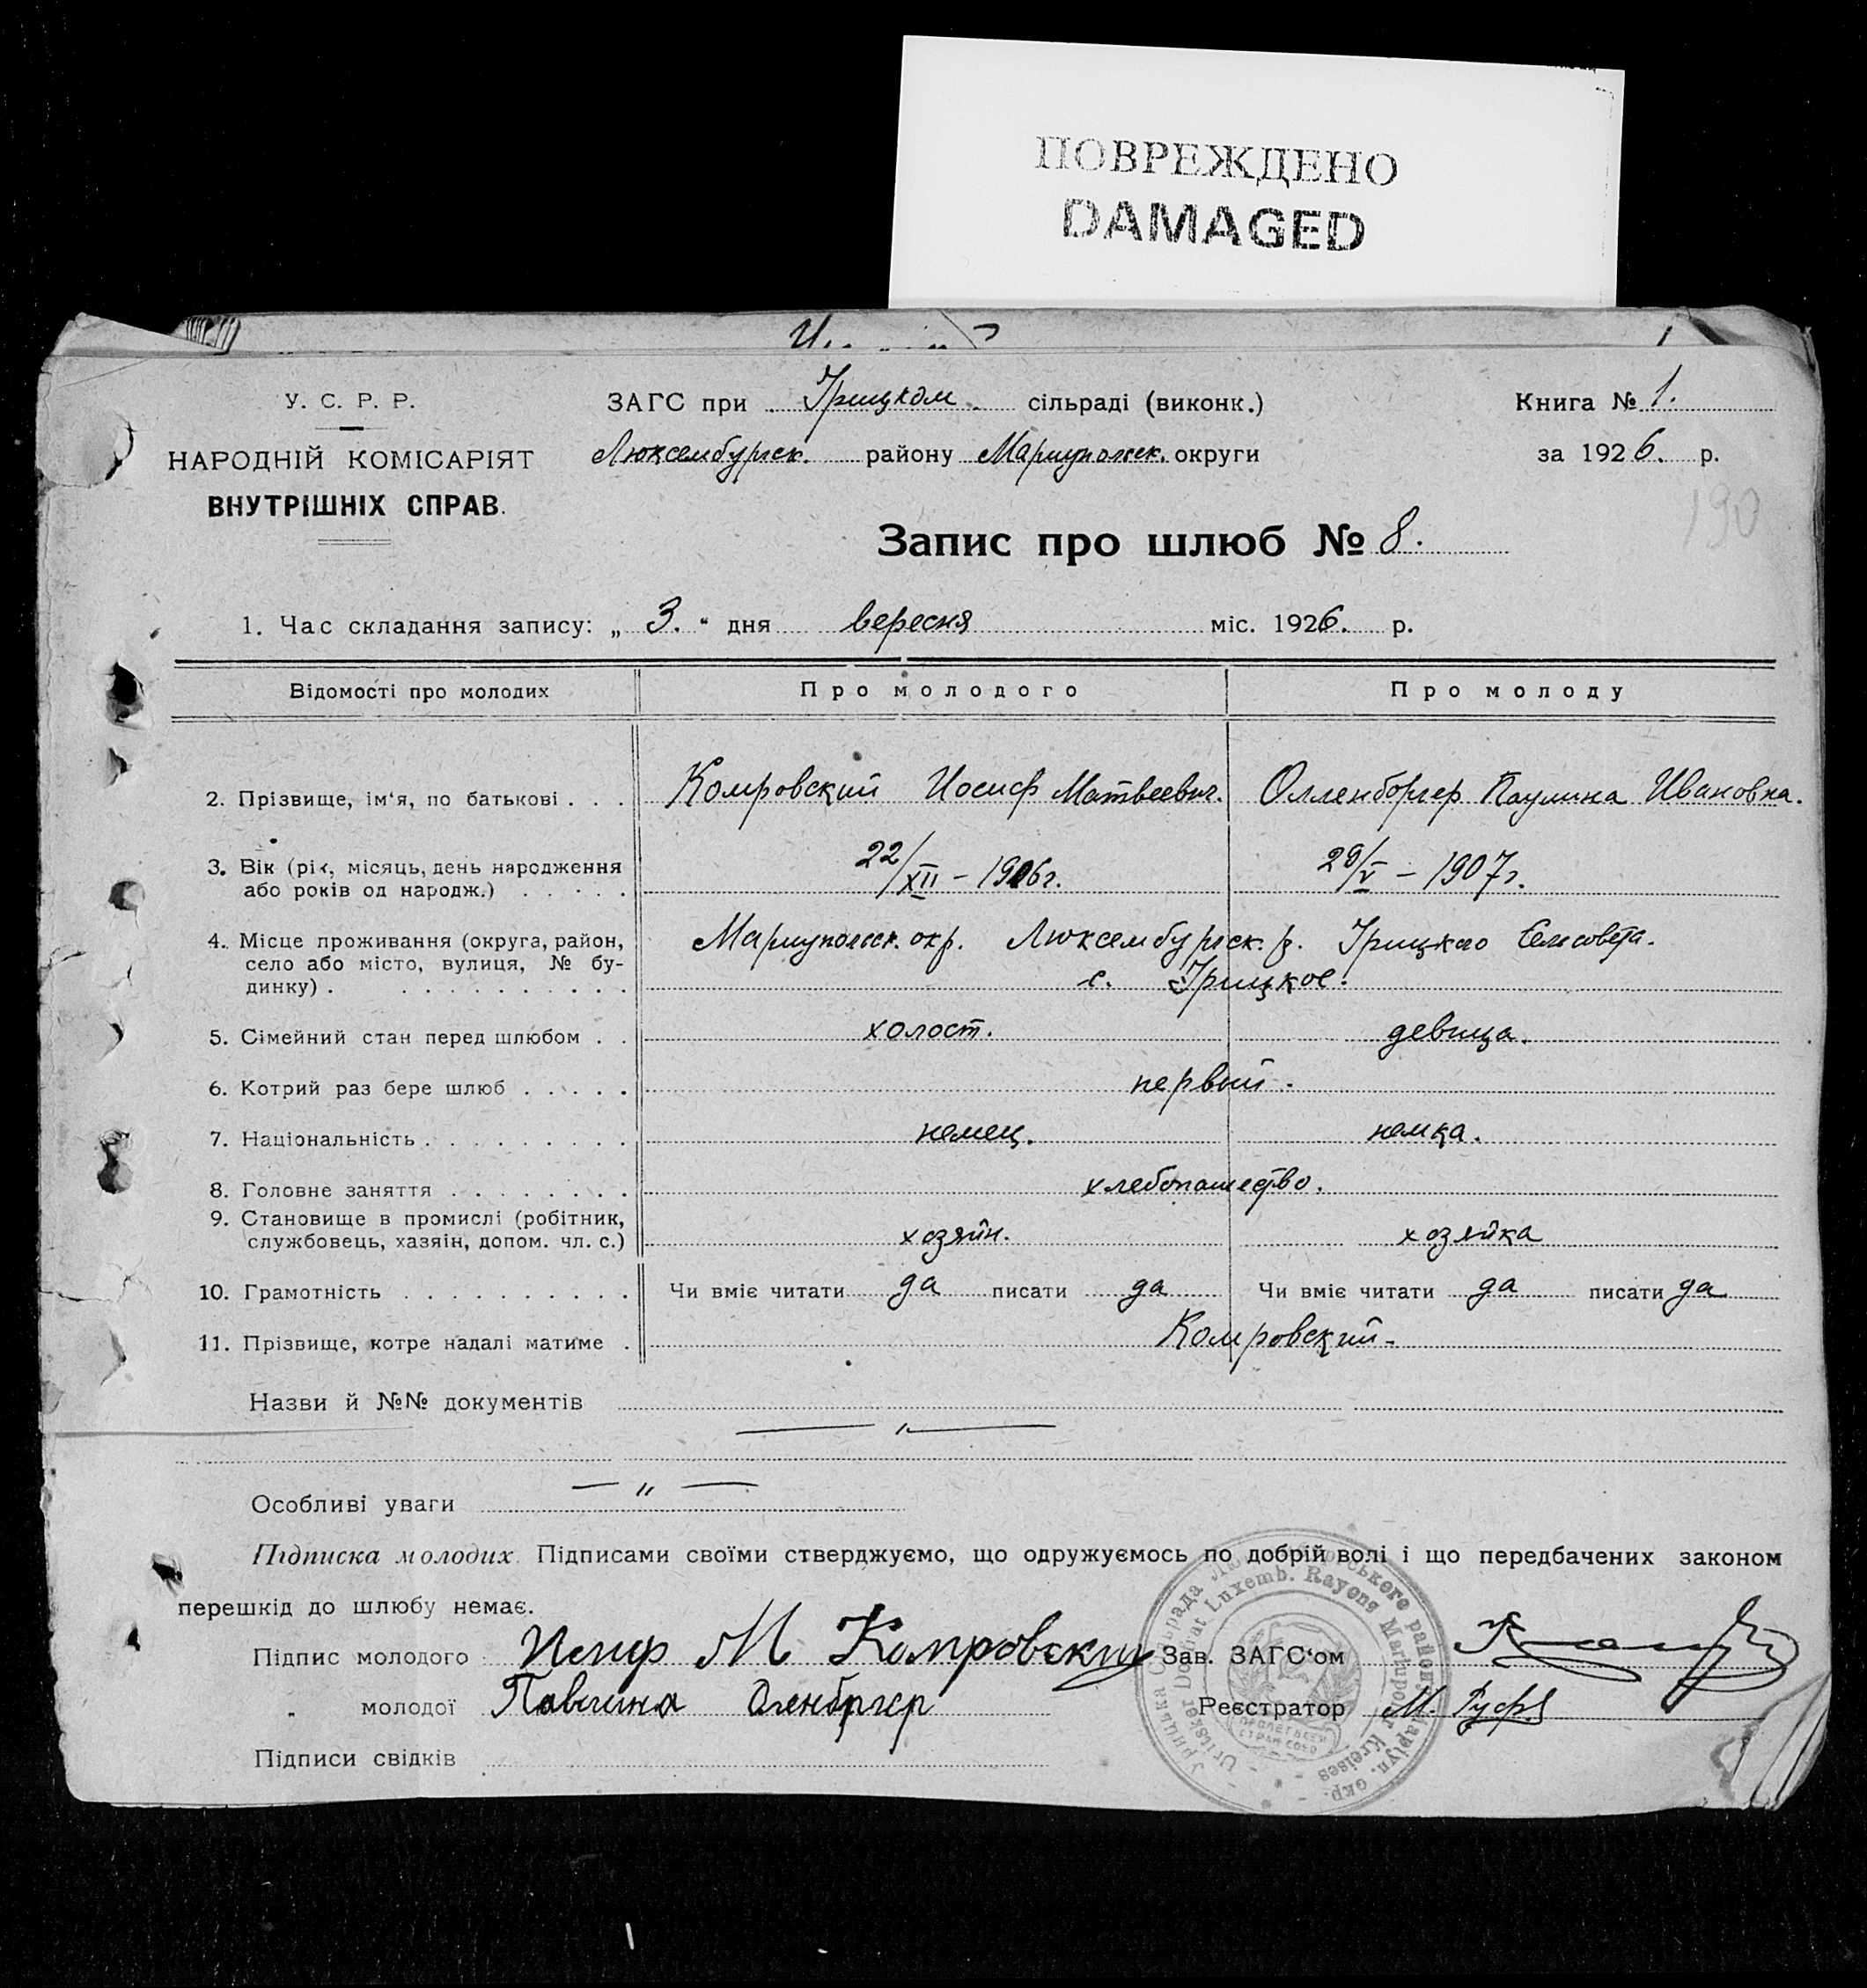 ПОВРЕЖДЕНО
DAMAGED
У. С. Р. Р.
НАРОДНІЙ КОМІСАРІЯТ
ВНУТРІШНІХ СПРАВ.
ЗАГС при Урицком сільраді (виконк.)
Люксембургск. району Мариупольск. округи
Книга № 1.
за 1926. р.
190
Запис про шлюб № 8.
1. Час складання запису: „ 3. “ дня вересня міс. 1926. р.
Відомості про молодих Про молодого Про молоду
2. Прізвище, ім‘я, по батькові . . . Комровский Иосиф Матвеевич. Олленборгер Паулина Ивановна.
3. Вік (рік, місяць, день народження
або років од народж.) . . . . . 22/XII – 1906г. 29/V – 1907г.
4. Місце проживання (округа, район, Мариупольск. окр. Люксембургск. р. Урицкаго Сельсовета.
село або місто, вулиця, № бу-
динку) . . . . . . . . . . . с. Урицкое.
5. Сімейний стан перед шлюбом . . холост. девица.
6. Котрий раз бере шлюб . . . . . первый.
7. Національність . . . . . . . . . немец. немка.
8. Головне заняття . . . . . . . . хлебопашество.
9. Становище в промислі (робітник,
службовець, хазяін, допом. чл. с.) хозяйн. хозяйка
10. Грамотність . . . . . . . . . . Чи вміє читати да писати да Чи вміє читати да писати да
11. Прізвище, котре надалі матиме . Комровский-
Назви й №№ документів
— „ —
Особливі уваги — „ —
Підписка молодих. Підписами своїми стверджуємо, що одружуємось по добрій волі і що передбачених законом
перешкід до шлюбу немає.
Підпис молодого Иосиф М Комровский Зав. ЗАГС‘ом
„ молодої Павлина Оленбргер Реєстратор М. Руф
Підписи свідків
Урицька Сільрада Люксембурського району Маріуп. окр.
Uritsker Dorfrat Luxemb. Rayons Mariupoler Kreises